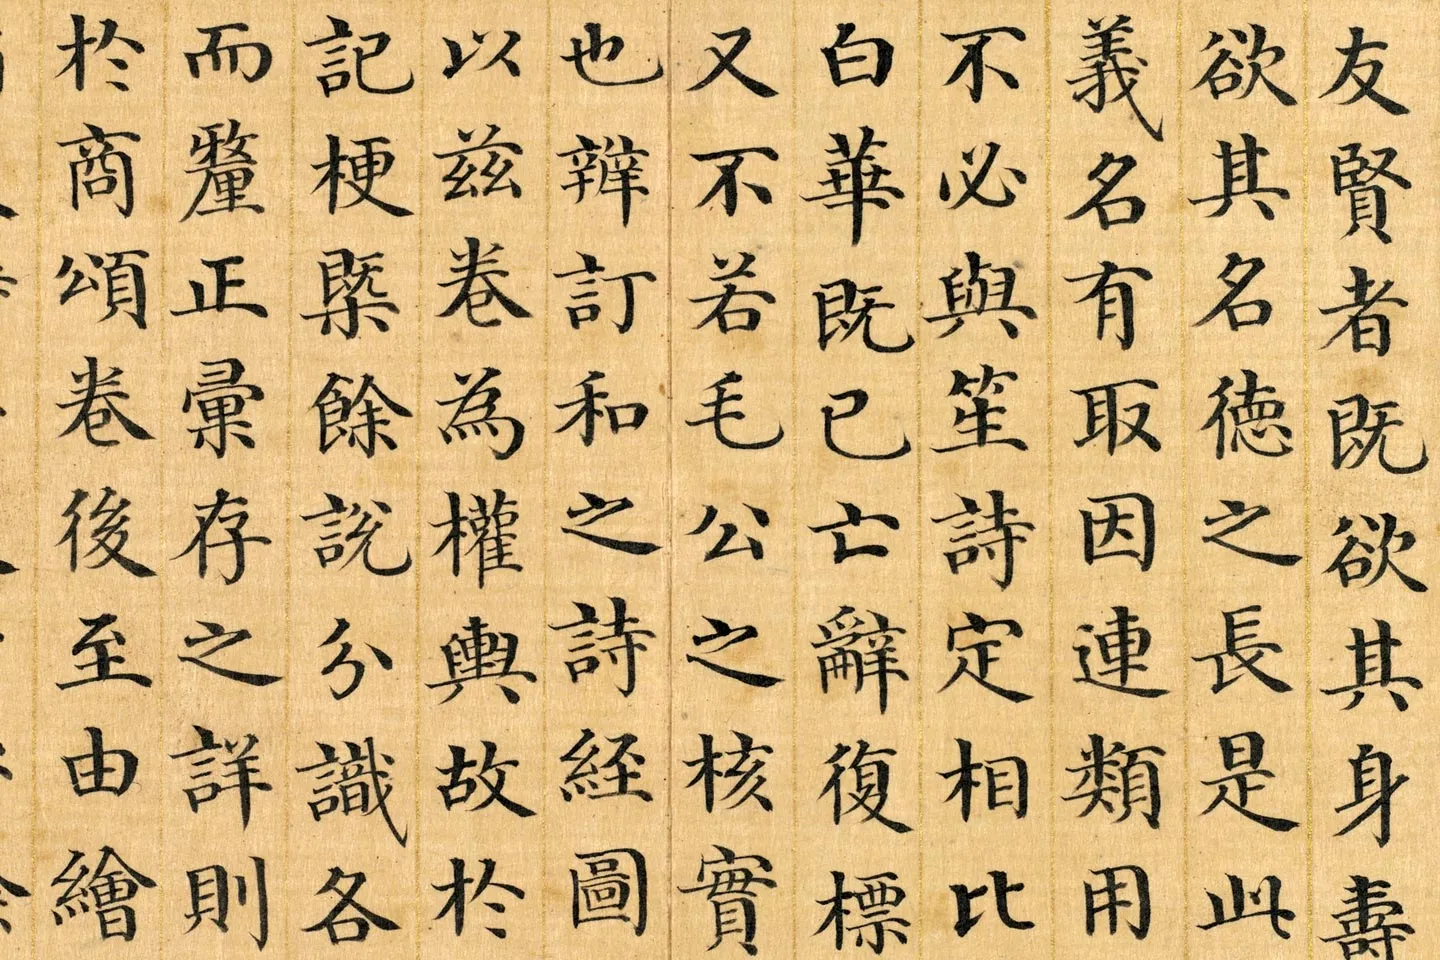 友賢者既欲其身壽
欲其名徳之長是此
義名有取因連類用
不必與笙詩定相比
白華既已亡辭復標
又不若毛公之核實
也辨訂和之詩経圖
以茲卷為權輿故於
記梗槩餘說分識各
而釐正彙存之詳則
於商頌卷後至由繪